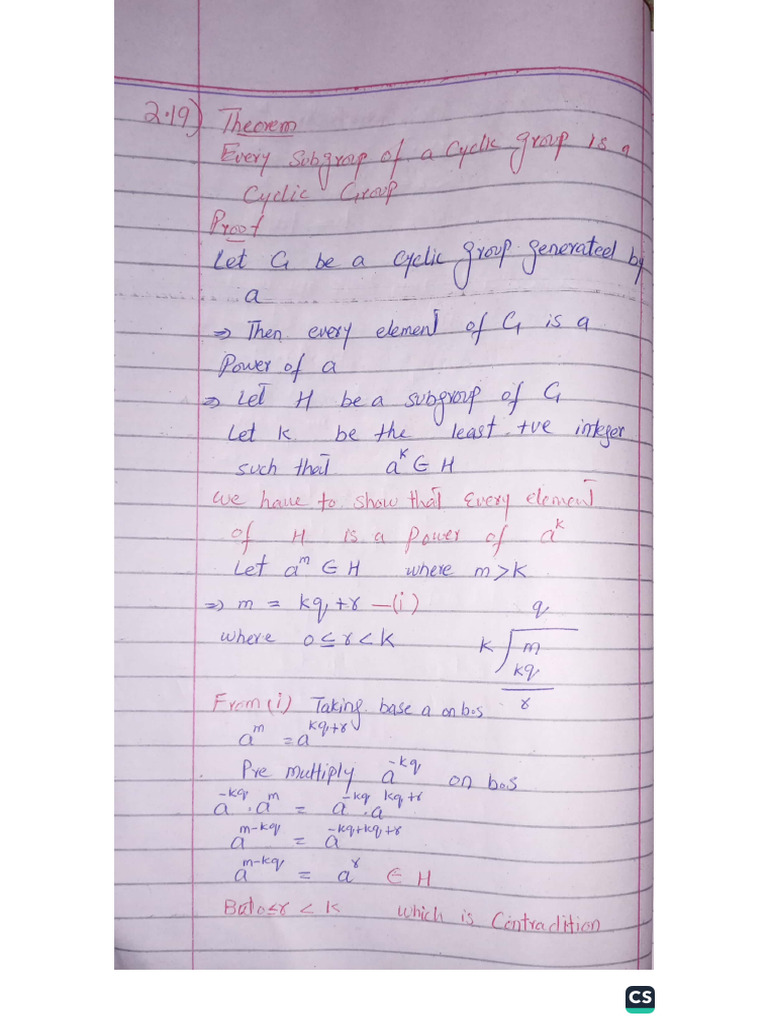 2.19) Theorem
Every Subgroup of a Cyclic group is a
Cyclic Group
Proof
Let G be a cyclic group generated by
a
⇒ Then every element of G is a
Power of a
⇒ Let H be a subgroup of G
Let k be the least +ve integer
such that a^k ∈ H
we have to show that Every element
of H is a power of a^k
Let a^m ∈ H where m > k
⇒ m = kq + r —(i)
where 0 ≤ r < k
q
k m
kq
r
From (i) Taking base a on b.s
a^m = a^{kq+r}
Pre multiply a^{-kq} on b.s
a^{-kq} . a^m = a^{-kq} . a^{kq+r}
a^{m-kq} = a^{-kq+kq+r}
a^{m-kq} = a^r ∈ H
But 0 ≤ r < k which is Contradition
CS